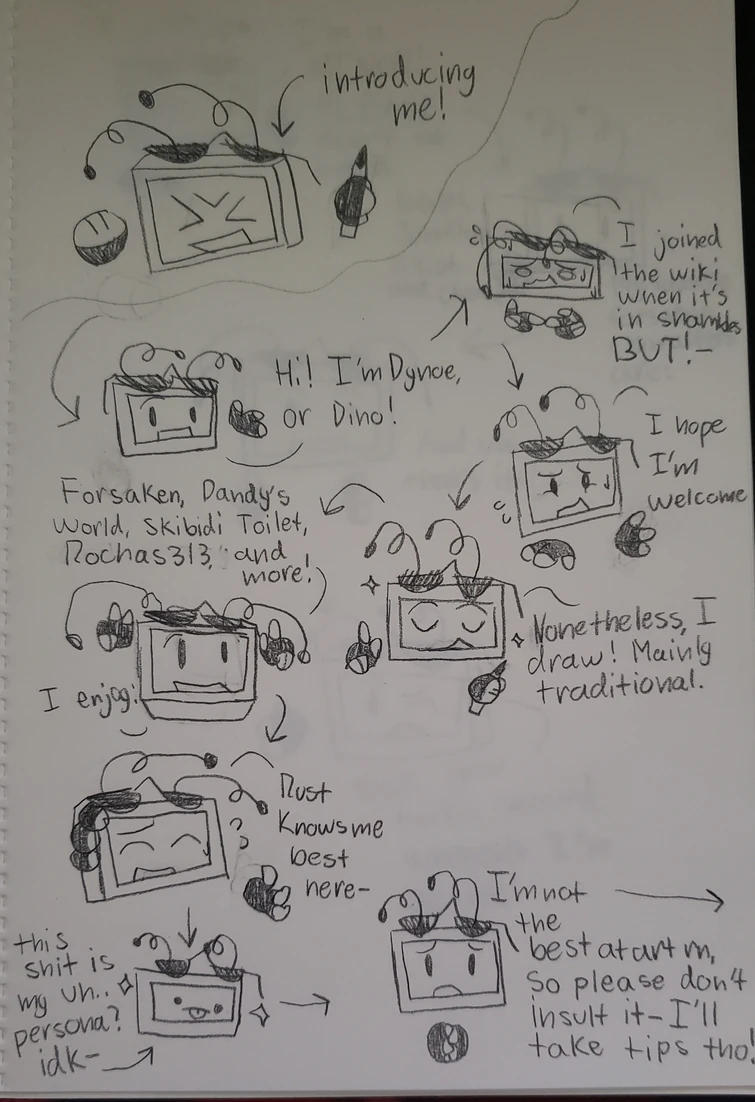 introducing
me!
Hi! I'm Dynoe,
or Dino!
I joined
the wiki
when it's
in shambles
BUT!-
I hope
I'm
welcome
Nonetheless, I
draw! Mainly
traditional.
I enjoy:
Forsaken, Dandy's
World, Skibidi Toilet,
Rochas313, and
more!
Rust
Knows me
best
here-
this
shit is
my uh..
persona?
idk-
I'm not
the
best at art m,
so please don't
insult it- I'll
take tips tho!